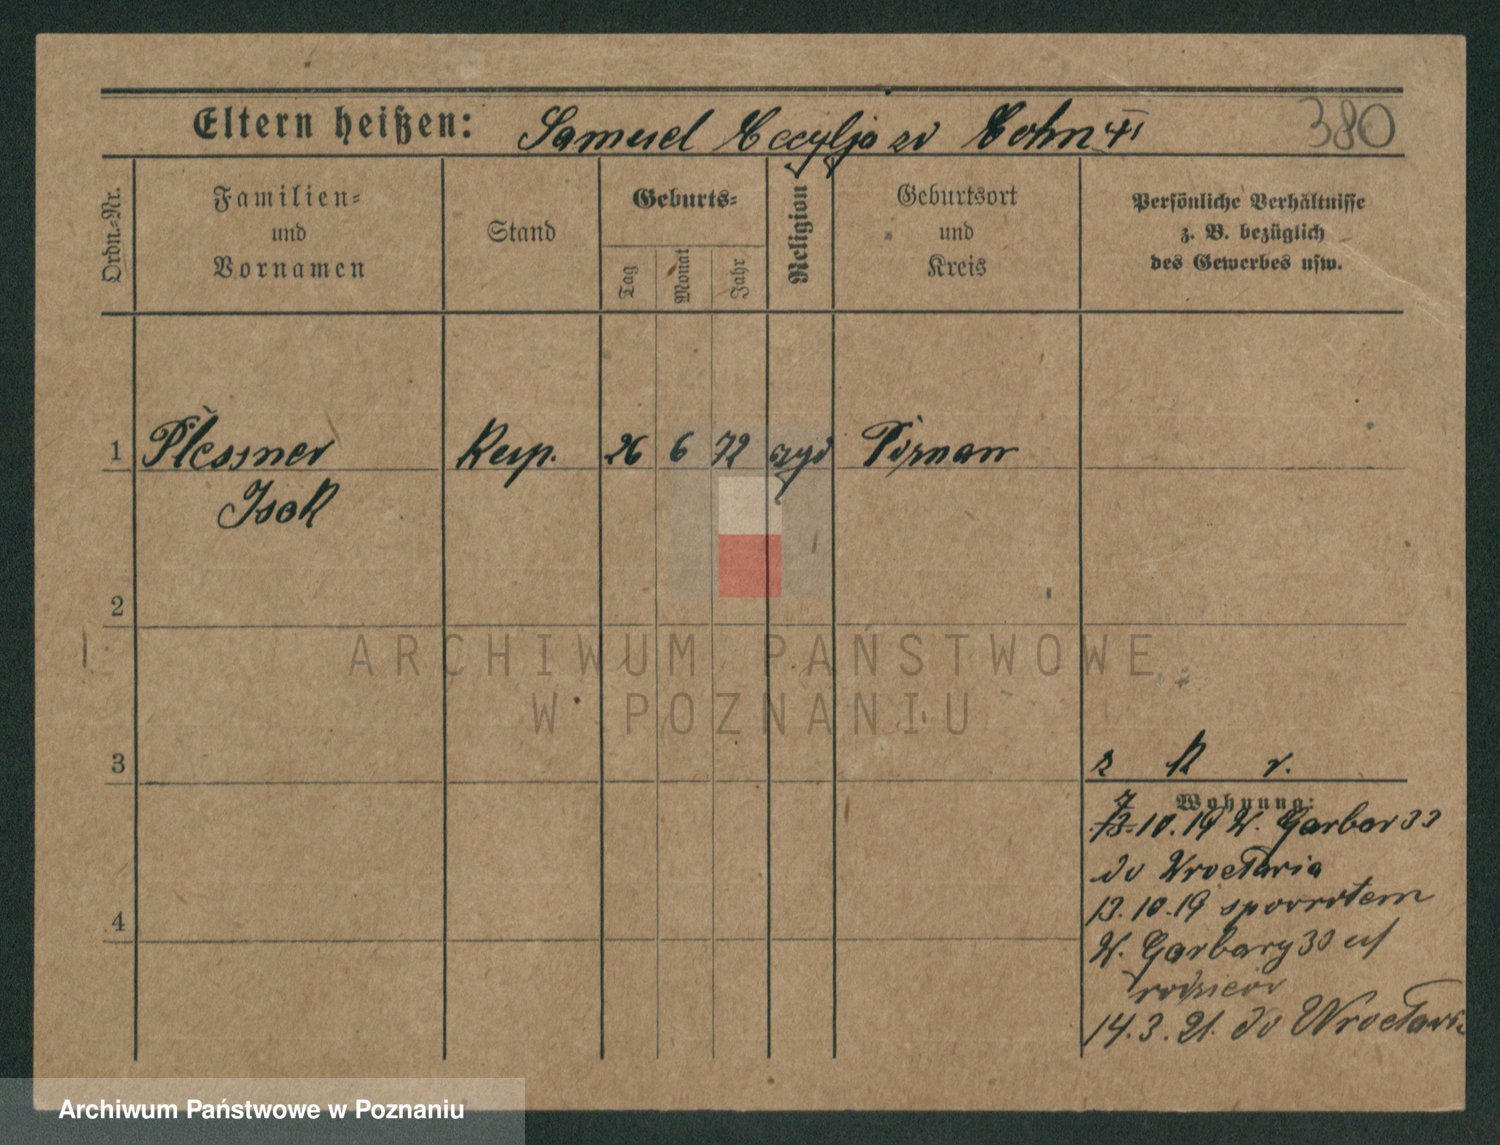 Eltern heißen: Samuel Cecylja zd Cohn
380
Ordn.-Nr.
Familien-
und
Vornamen
Stand
Geburts-
Tag
Monat
Jahr
Religion
Geburtsort
und
Kreis
Persönliche Verhältnisse
z. B. bezüglich
des Gewerbes usw.
1 Plessner Kup. 26 6 72 żyd Poznań
Isak
2
3
4
Wohnung:
7
13.10.19 W. Garbar 33
do Wrocławia
13.10.19 spowrotem
W. Garbary 33 u/
rodziców
14.3.21. do Wrocławia
ARCHIWUM PAŃSTWOWE
W POZNANIU
Archiwum Państwowe w Poznaniu